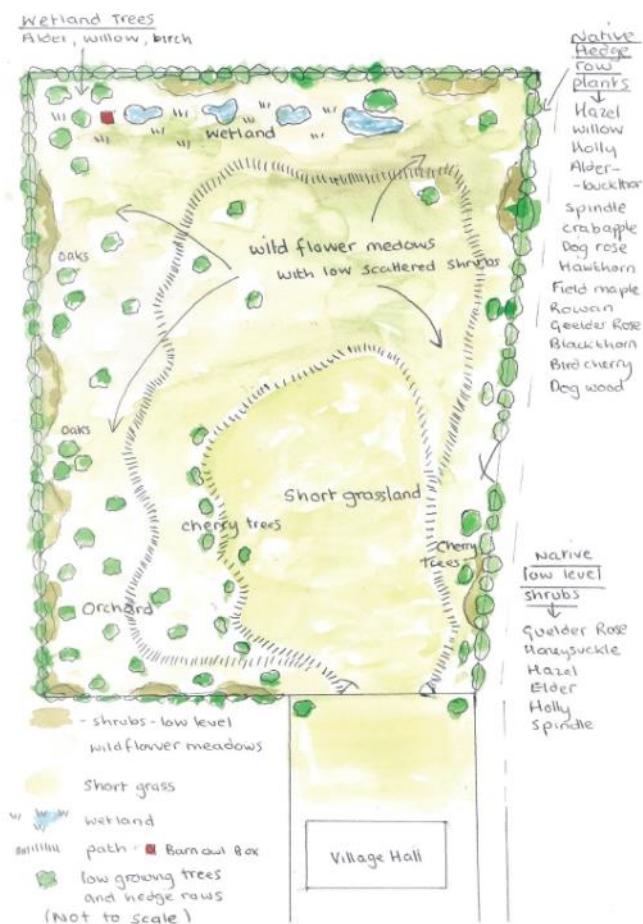 Wetland Trees
Alder, willow, birch
Native
Hedge
row
plants
Hazel
willow
Holly
Alder-
-buckthor
Spindle
crabapple
Dog rose
Hawthorn
Field maple
Rowan
Geelder Rose
Blackthorn
Bird cherry
Dog wood
wetland
wild flower medows
with low scattered shrubs
oaks
oaks
Short grassland
cherry trees
Cherry
trees
Orchard
Native
low level
shrubs
Guelder Rose
Honeysuckle
Hazel
Elder
Holly
Spindle
- shrubs - low level
wildflower meadows
Short grass
wetland
path - Barn owl Box
low growing trees
and hedge rows
(Not to scale)
Village Hall